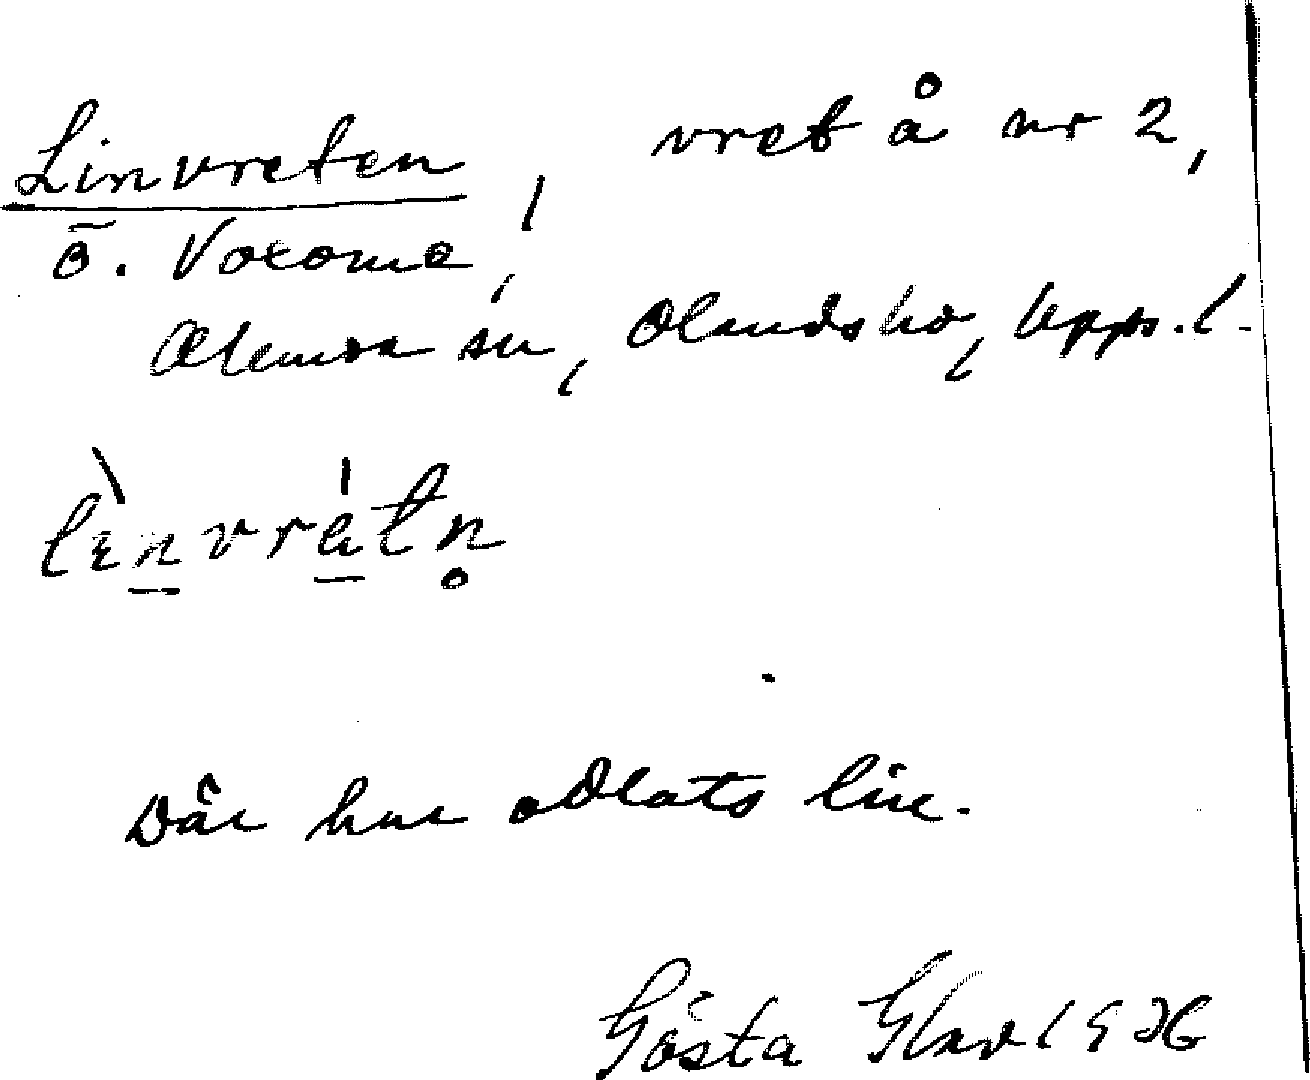 Linvreten, vret å nr 2,
Ö. Voxome,
Alunda sn, Olands hd, Upps. l.
lɪnvretn̥
Där har odlats lin.
Gösta 1936